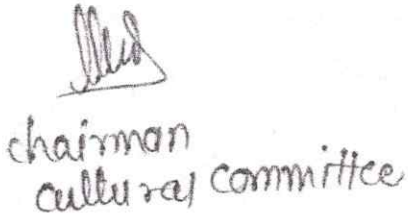 chairman
cultural committee